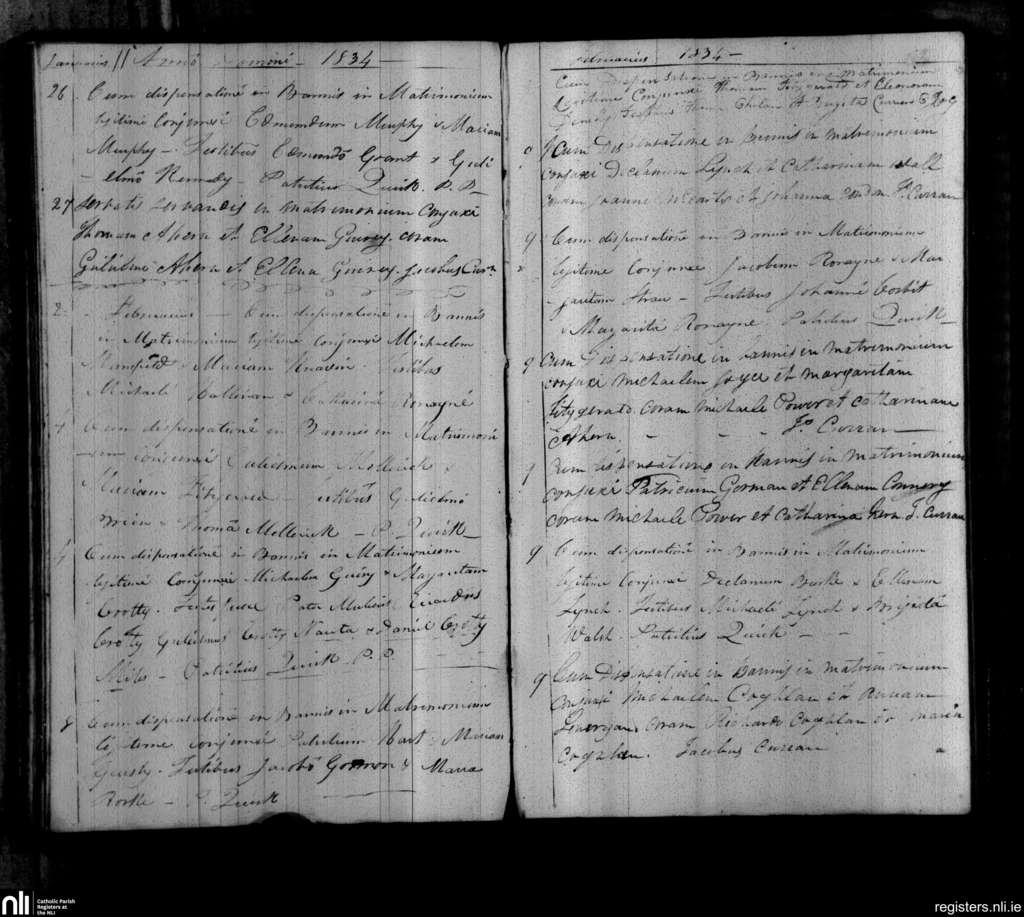 Januarius // Anno Domini - 1834 -
26 Cum dispensatione in Bannis in Matrimonium
legitime Conjunxi Edmundum Murphy & Mariam
Murphy - Testibus Edmundo Grant & Guli
- elmo Kennedy - Patritius Quirk. P. P.
27 Servatis servandis in matrimonium Conjuxi
Thomam Ahern et Ellenam Gurey. coram
Gulielmo Ahern et Ellena Gourey. Jacobus Curn
2 - Februarius - Cum dispensatione in Bannis
in Matrimonium legitime Conjunxi Michaelem
Mariam Testibus
Michaele Sullivan & Catharina Ronayne
4 Cum dispensatione in Bannis in Matrimoni
-um conjunxi Gulielmum Mollerick &
Mariam Fitzgerald - Testibus Gulielmo
Brien & Thoma Mollerick - P. Quirk -
4 Cum dispensatione in Bannis in Matrimonium
legitime Conjunxi Michaelem Guiry & Margaritam
Crotty. Testes fuere Pater Mulieris Eduardus
Crotty Gulielmus Crotty Nauta & Daniel Crotty
Miles - Patritius Quirk P. P.
8 Cum dispensatione in Bannis in Matrimonium
legitime conjunxi Patritium Hart & Mariam
Testibus Jacobo Gorman & Maria
Rorke - P. Quirk
Februarius 1834 -
Cum Dispensatione in Bannis in Matrimonium
legitime Conjunxi Thomam Fitzgerald et Eleonoram
Testibus et Brigida
9 Cum Dispensatione in Bannis in matrimonium
conjuxi Declanum Lynch et Catharinam Wall
coram Joanne McCarty et Johanna Condon Js. Curran
9 Cum dispensatione in Bannis in Matrimonium
legitime Conjunxi Jacobum Ronayne & Mar
- garitam Shea - Testibus Johanne Corbit
& Margarita Ronayne. Patritius Quirk -
9 Cum Dispensatione in Bannis in matrimonium
conjuxi michaelem Joyce et margaritam
Fitzgerald. coram michaele Power et catharinam
Ahern. - - - Js. Curran -
9 Cum dispensatione in Bannis in matrimonium
conjuxi Patricium Gorman et Ellenam Connory
coram michaele Power et Catharina Hern. J. Curran
9 Cum dispensatione in Bannis in Matrimonium
legitime Conjunxi Declanum Burke & Ellenam
Lynch. Testibus Michaele Lynch & Brigida
Walsh. Patritius Quirk - -
9 Cum Dispensatione in Bannis in matrimonium
Conjuxi Michaelem Coghlan et Annam
coram Richardo Coghlan et maria
Coghlan. Jacobus Curran
nli Catholic Parish
Registers at
the NLI
registers.nli.ie